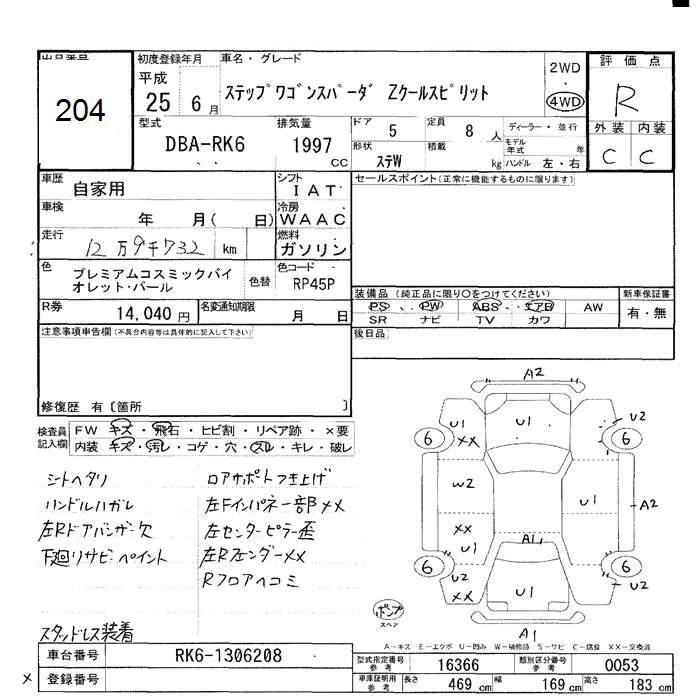 出品番号
204
初度登録年月
平成
25 6 月
車名・グレード
ステップワゴンスパーダ Zクールスピリット
2WD
・
4WD
評価点
R
外装 内装
C C
型式
DBA-RK6
排気量
1997
CC
ドア 5
定員 8 人
ディーラー・並行
形状
ステW
積載
kg
モデル年式 年
ハンドル 左・右
車歴
自家用
シフト
I A T
セールスポイント(正常に機能するものに限ります)
車検
年 月( 日)
冷房
WAAC
走行
12万9千732 km
燃料
ガソリン
色
プレミアムコスミックバイ
オレット・パール
色替
色コード
RP45P
R券
14,040 円
名変通知期限
月 日
装備品 (純正品に限り○をつけてください)
PS・PW ABS・エアB AW
SR ナビ TV カワ
新車保証書
有・無
注意事項申告欄(不具合内容等は具体的に記入して下さい)
後日品
修復歴 有〔箇所 〕
検査員
記入欄
FW キズ・飛石・ヒビ割・リペア跡・×要
内装 キズ・汚レ・コゲ・穴・スレ・キレ・破レ
シートヘタリ
ハンドルハガレ
左Rドアバンザー欠
下廻リサビ・ペイント
スタッドレス装着
ロアサポートつき上げ
左Fインパネ一部××
左センターピラー歪
左Rフェンダー××
Rフロアヘコミ
A2
U1
××
U1
U2
6
6
W2
U1
A2
××
U1
A1
6
6
U2
××
U1
U2
A1
ポンプ
スペア
A-キズ E-エクボ U-凹み W-補修跡 S-サビ C-腐食 XX-交換済
車台番号
RK6-1306208
登録番号
×
型式指定番号
参考
16366
類別区分番号
参考
0053
車庫証明用
参考
長さ 469 cm
幅 169 cm
高さ 183 cm